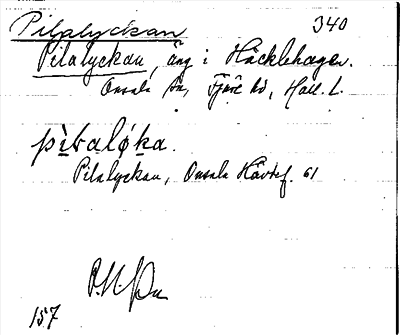 Pilalyckan 340
Pilalyckan, äng i Häcklehagen.
Onsala sn, Fjäre hd, Hall. l.
pìḷalǿka.
Pilalyckan, Onsala Hävtef. 61
157